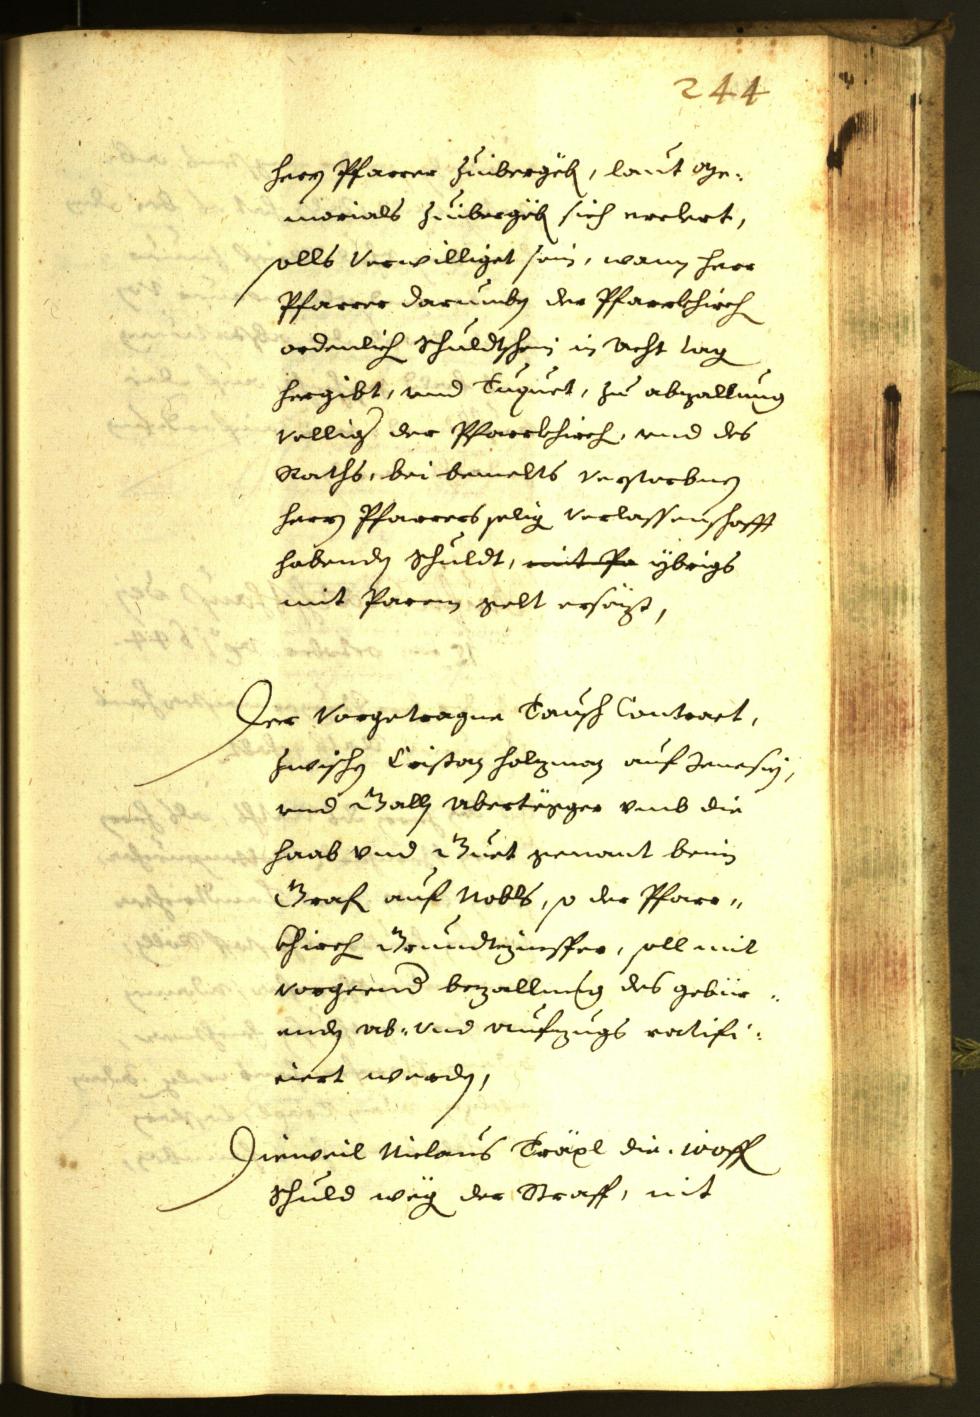 244
herrn Pfarrer zuibergeb, laut Me-
morials zuibergeb sich erclert,
solls verwilliget sein, wann herr
Pfarrer darumben der Pfarrkhirch
ordenlich schuldtschein in acht tag
hergibt, und zu abzallung
vellig der Pfarrkhirch, und des
Raths, bei bemelts verstorbnen
herrn Pfarrers selig verlassenschafft
habenden schuldt, mit Pa ybrigs
mit Parem gelt ersözt,
Der vorgetragne Tausch Contract,
zwischen Cristan holzman auf Jenesien,
und Gall vmb die
haab vnd Guet genant beim
Graf auf Nobls, so der Pfarr-
khirch Grundtzinsser, soll mit
vorgeend bezallung des gebür-
enden ab- vnd aufzugs ratifi-
ciert werden,
Dieweil Niclaus Träxl die
schuld weg der Straff, nit